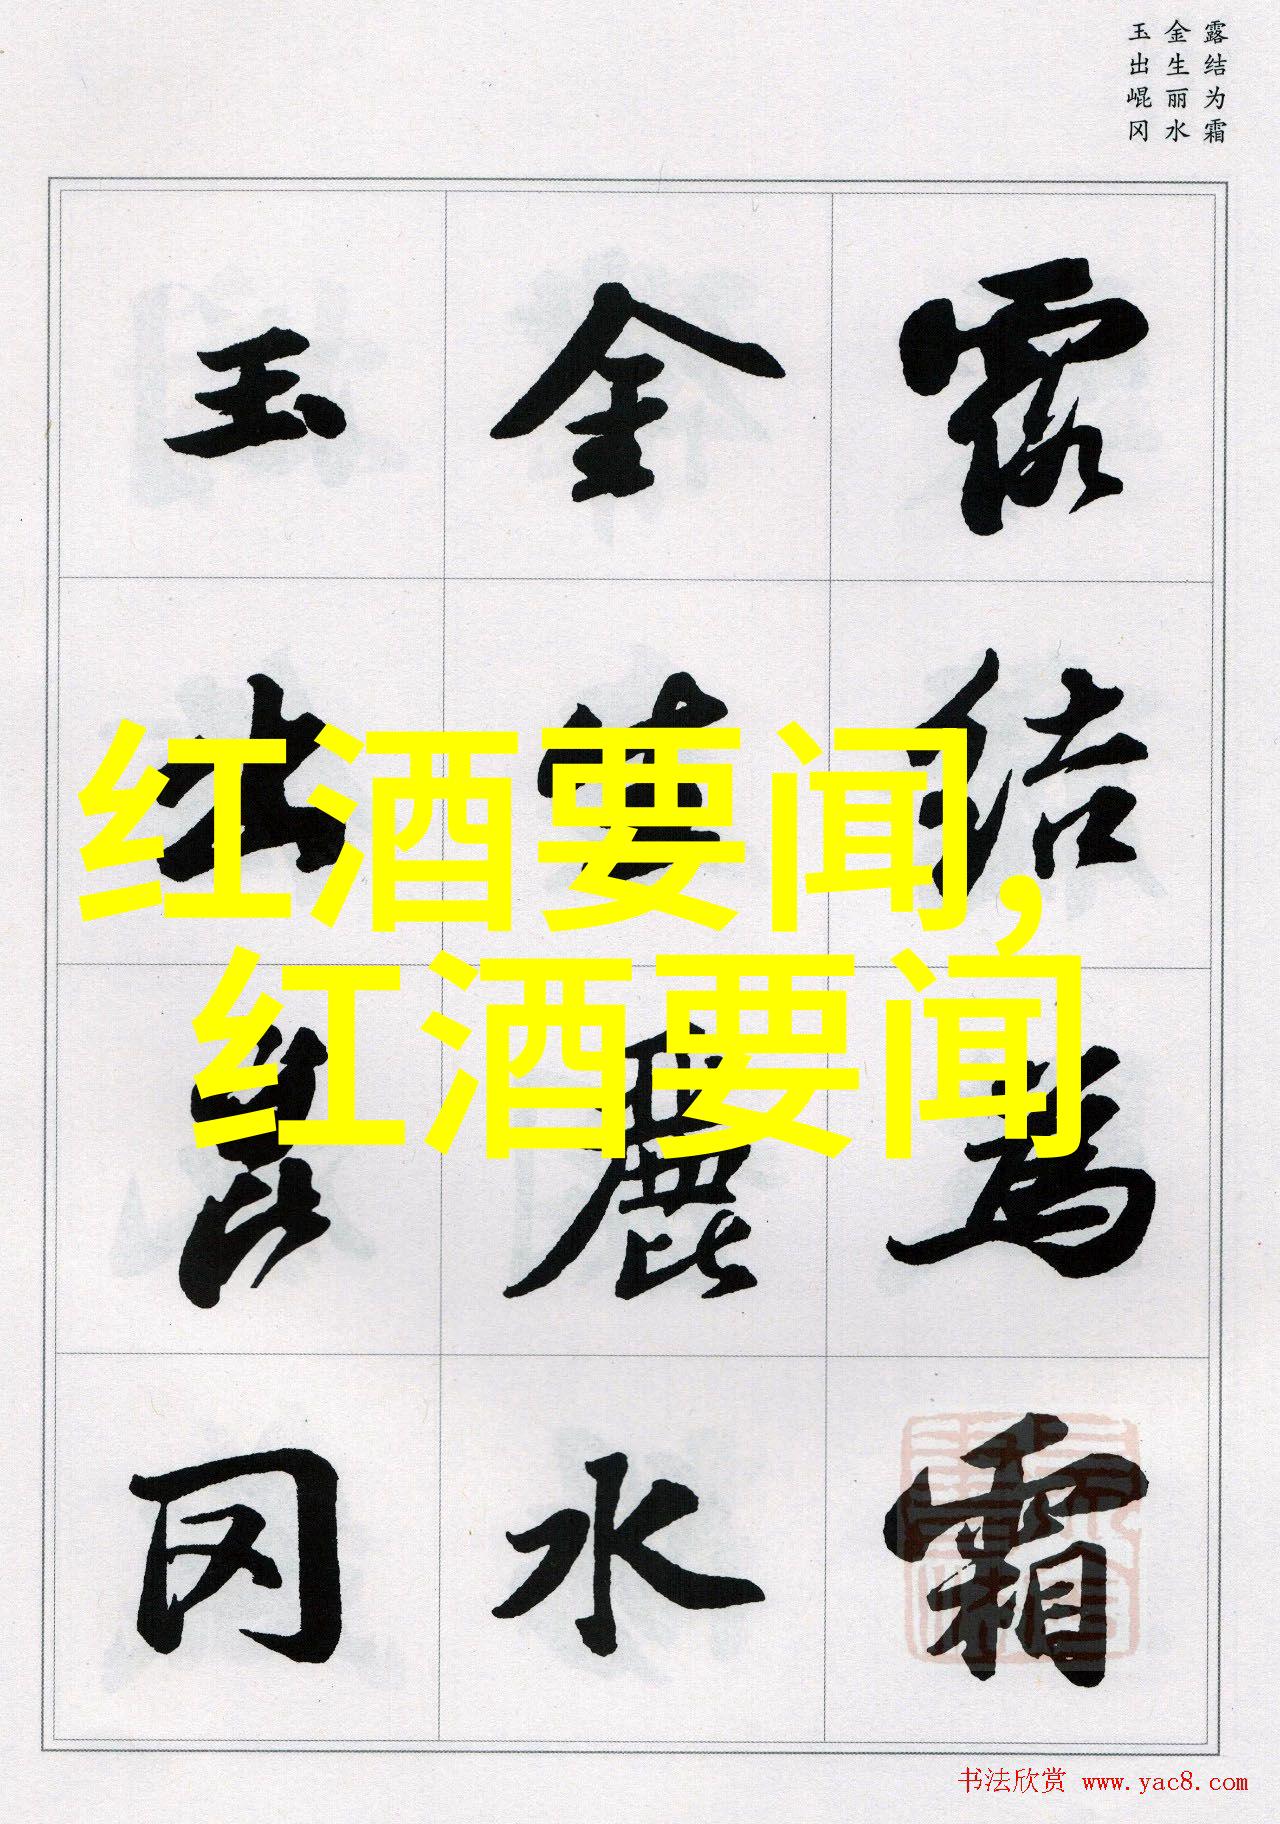 露结为霜
金生丽水
玉出崐冈
露結為霜
金生麗水
玉出崑冈
红酒要闻,
红酒要闻
书法欣赏 www.yac8.com